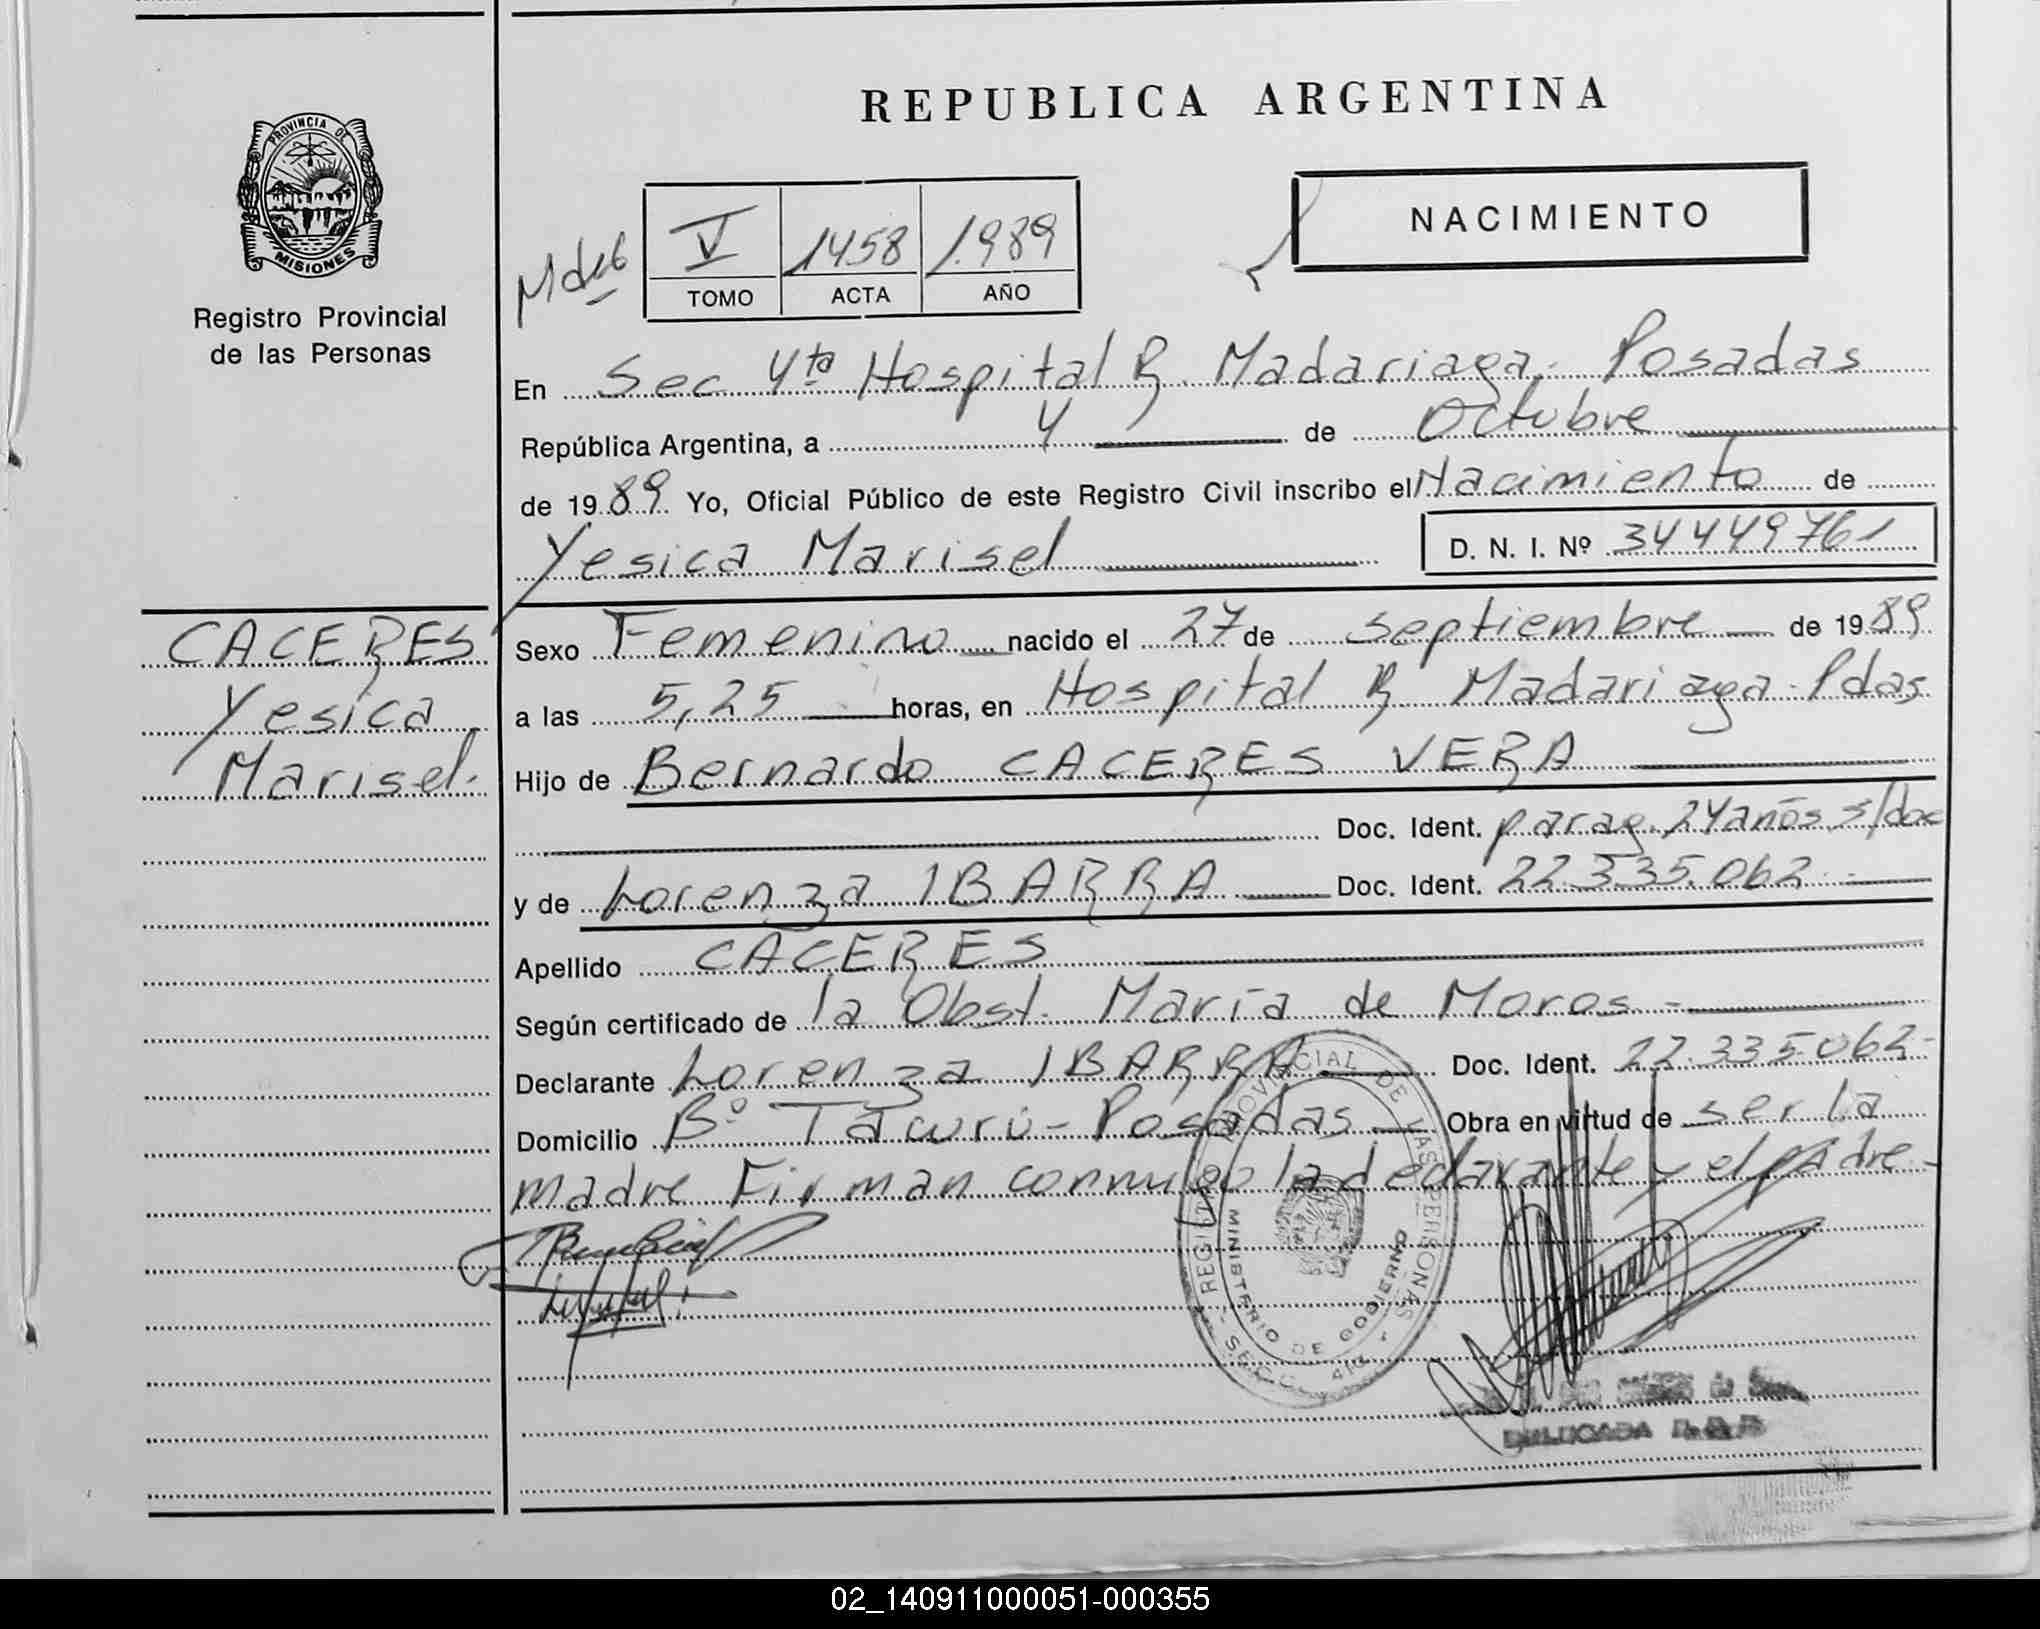 REPUBLICA ARGENTINA
PROVINCIA DE
MISIONES
Registro Provincial
de las Personas
V 1458 1.989
TOMO ACTA AÑO
NACIMIENTO
En Sec 4ta Hospital R. Madariaga. Posadas
República Argentina, a 4 de Octubre
de 1989 Yo, Oficial Público de este Registro Civil inscribo el Nacimiento de
Yesica Marisel D. N. I. Nº 34449761
CACERES
Yesica
Marisel.
Sexo Femenino nacido el 27 de septiembre de 1989
a las 5,25 horas, en Hospital R Madariaga. Pdas
Hijo de Bernardo CACERES VERA
Doc. Ident. parag. 24 años s/doc
y de Lorenza IBARRA Doc. Ident. 22.335.062.
Apellido CACERES
Según certificado de la Obst. María de Moros
Declarante Lorenza IBARRA Doc. Ident. 22.335.062-
Domicilio Bº Tacurú - Posadas Obra en virtud de ser la
madre Firman conmigo la declarante y el padre-
REGISTRO PROVINCIAL DE LAS PERSONAS
MINISTERIO DE GOBIERNO
02_140911000051-000355